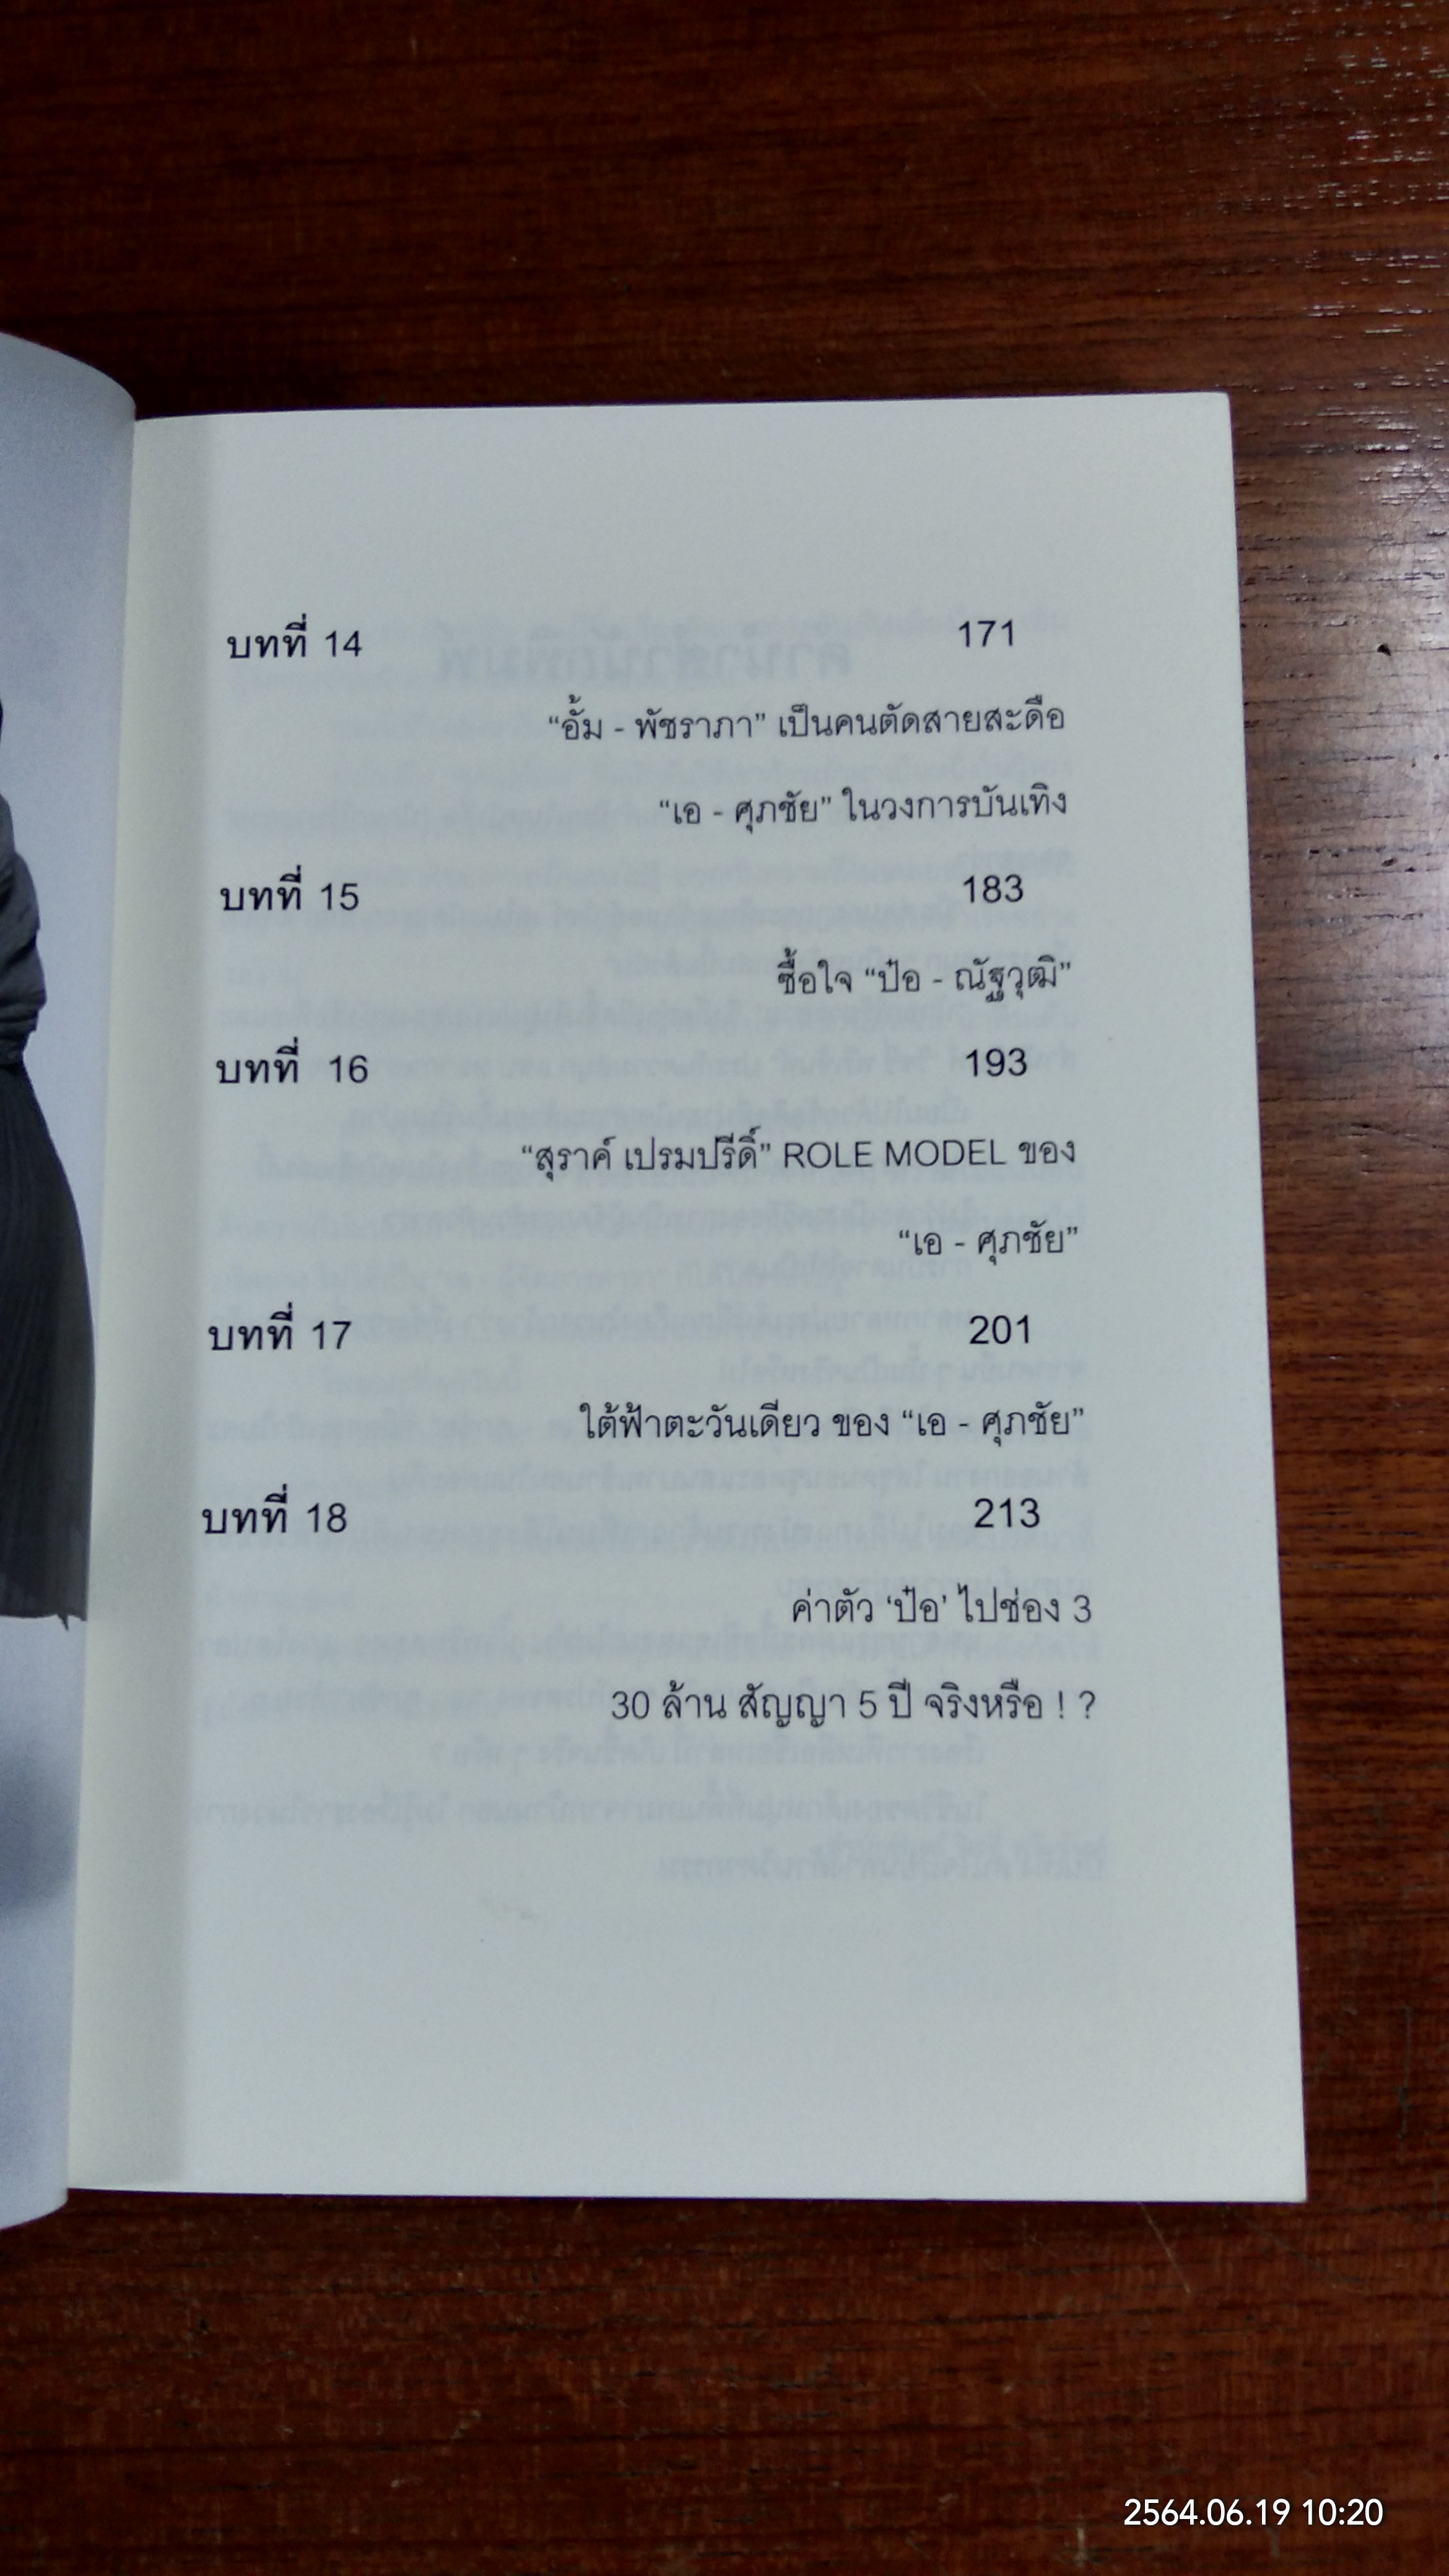 บทที่ 14 171
“อั้ม - พัชราภา” เป็นคนตัดสายสะดือ
“เอ - ศุภชัย” ในวงการบันเทิง
บทที่ 15 183
ซื้อใจ “ป๋อ - ณัฐวุฒิ”
บทที่ 16 193
“สุราค์ เปรมปรีดิ์” ROLE MODEL ของ
“เอ - ศุภชัย”
บทที่ 17 201
ใต้ฟ้าตะวันเดียว ของ “เอ - ศุภชัย”
บทที่ 18 213
ค่าตัว ‘ป๋อ’ ไปช่อง 3
30 ล้าน สัญญา 5 ปี จริงหรือ ! ?
2564.06.19 10:20